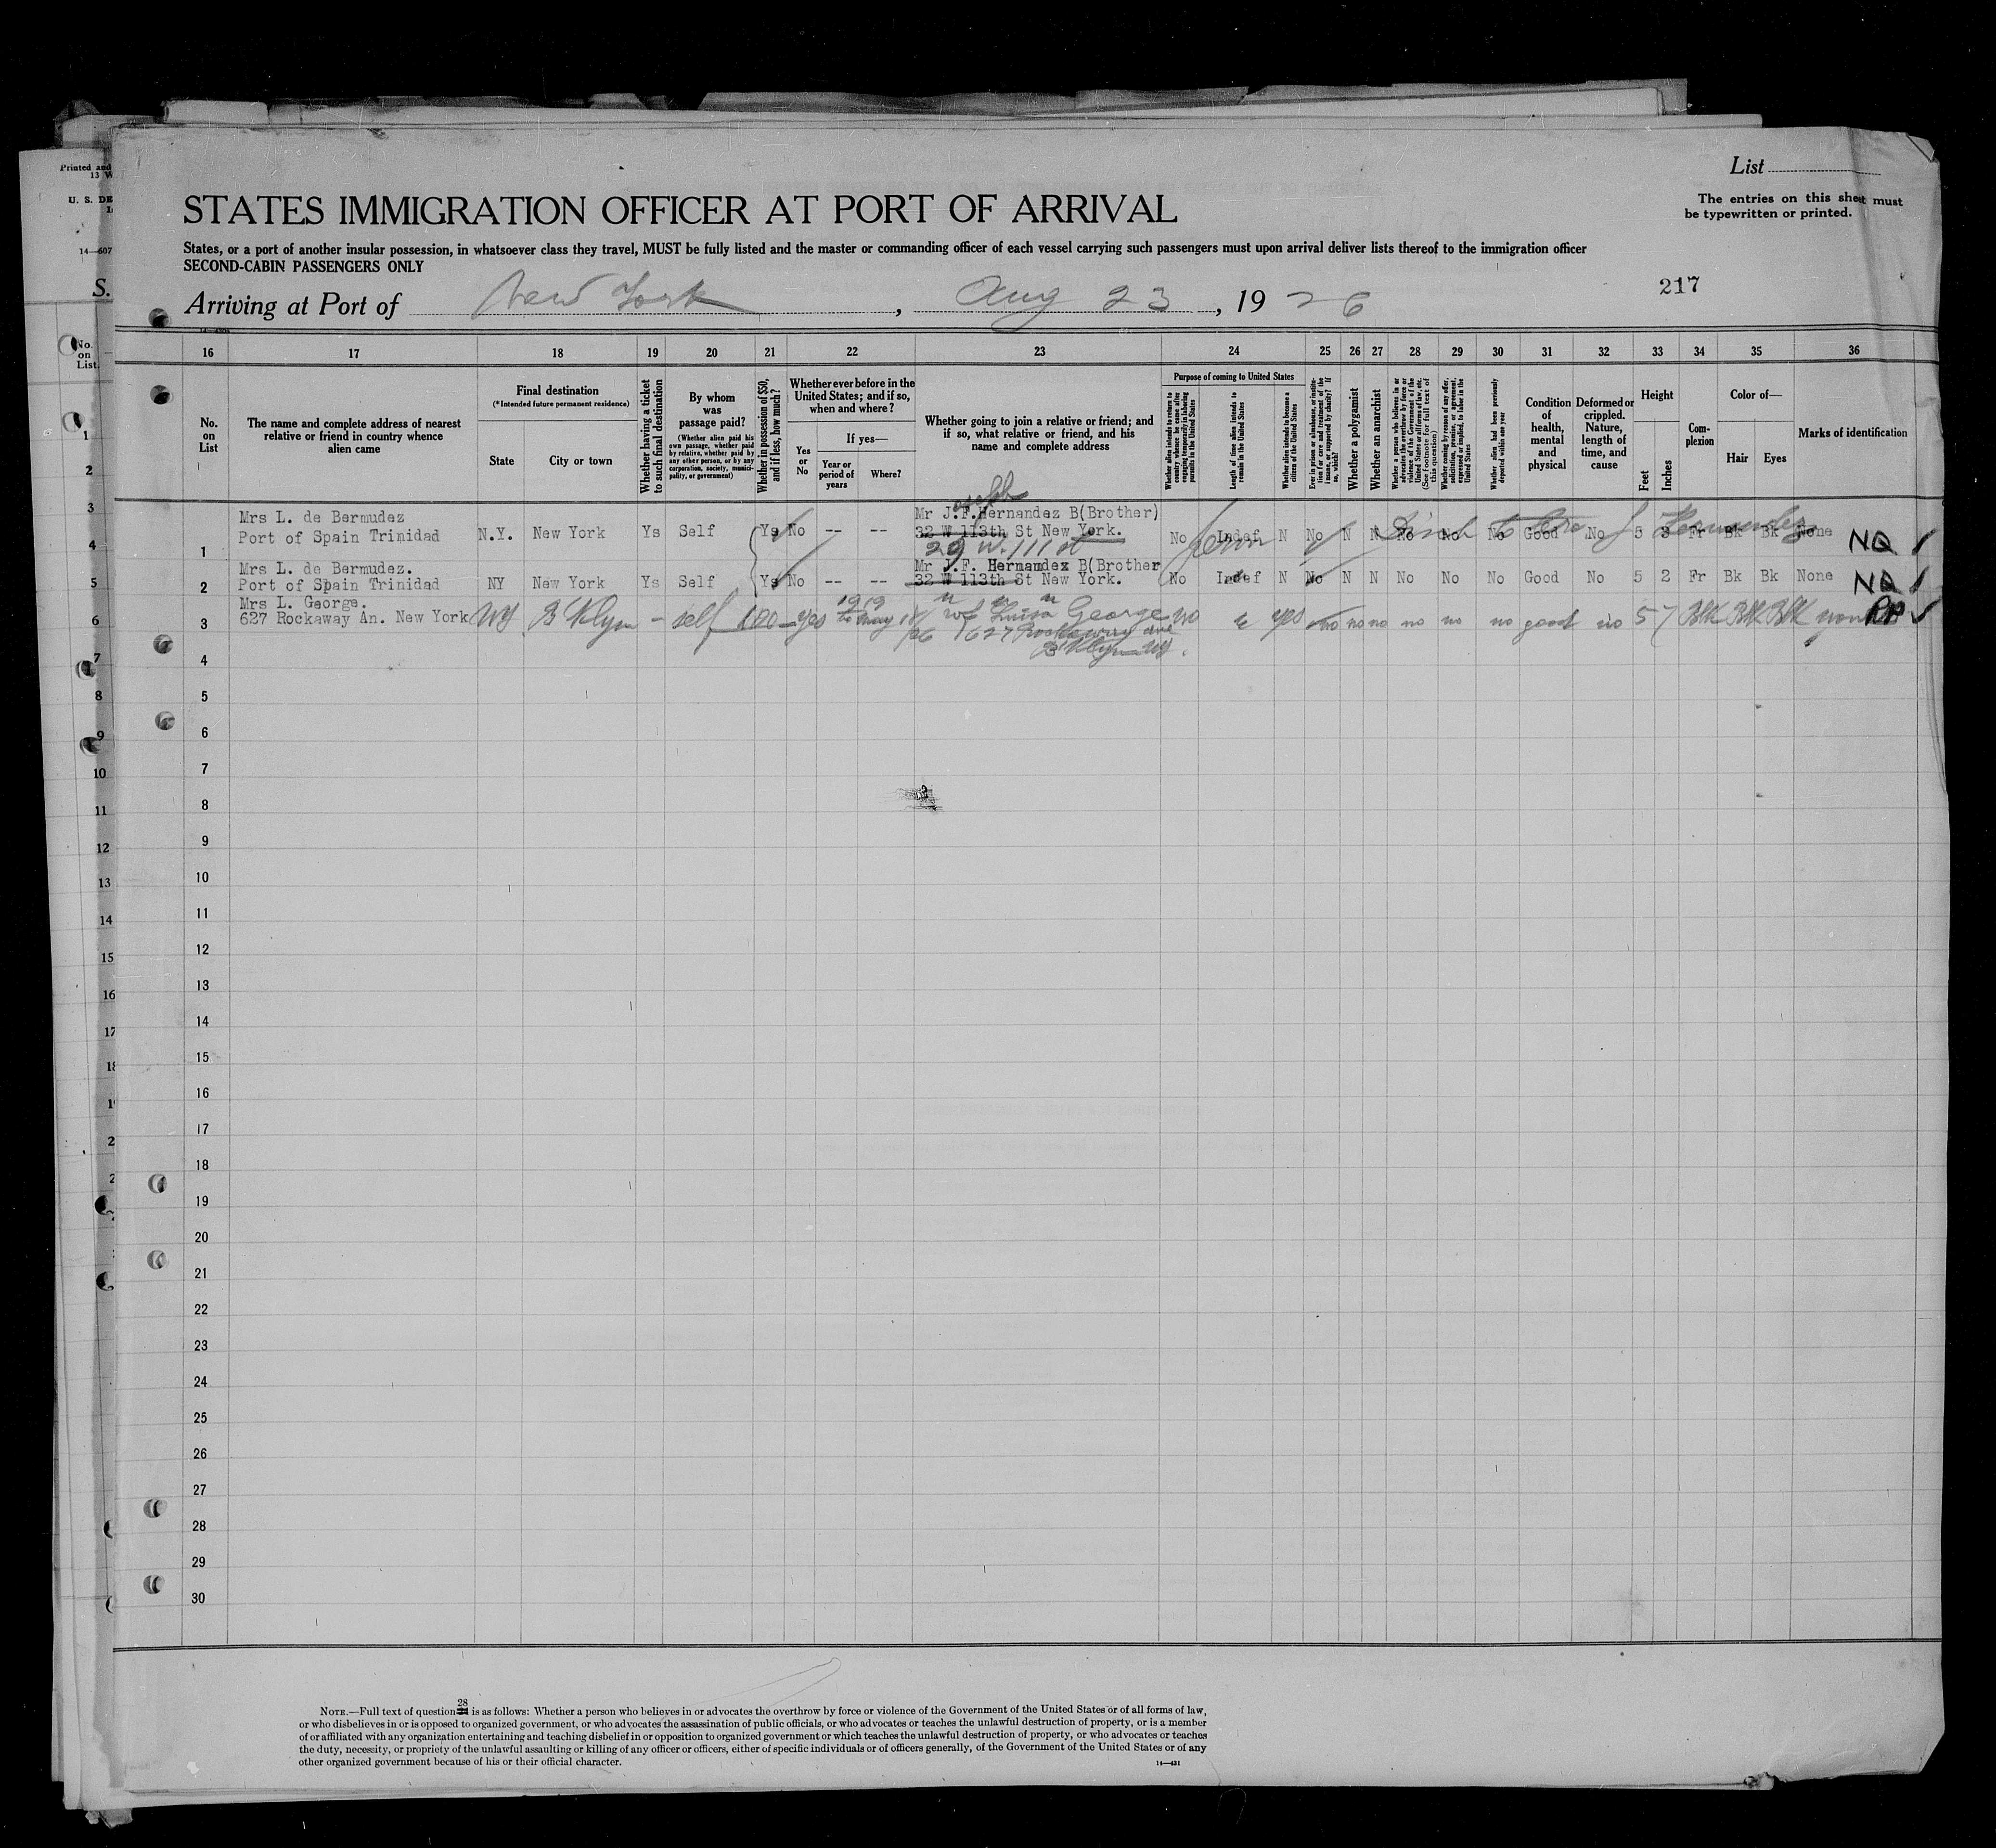 List
The entries on this sheet must
be typewritten or printed.
STATES IMMIGRATION OFFICER AT PORT OF ARRIVAL
States, or a port of another insular possession, in whatsoever class they travel, MUST be fully listed and the master or commanding officer of each vessel carrying such passengers must upon arrival deliver lists thereof to the immigration officer
SECOND-CABIN PASSENGERS ONLY
217
Arriving at Port of New York, Aug 23, 1926
16 17 18 19 20 21 22 23 24 25 26 27 28 29 30 31 32 33 34 35 36
No. on List
The name and complete address of nearest
relative or friend in country whence
alien came
Final destination
(*Intended future permanent residence)
State
City or town
Whether having a ticket
to such final destination
By whom
was
passage paid?
(Whether alien paid his
own passage, whether paid
by relative, whether paid by
any other person, or by any
corporation, society, munici-
pality, or government)
Whether in possession of $50,
and if less, how much?
Whether ever before in the
United States; and if so,
when and where?
Yes
or
No
If yes—
Year or
period of
years
Where?
Whether going to join a relative or friend; and
if so, what relative or friend, and his
name and complete address
Purpose of coming to United States
Whether alien intends to return to
country whence he came after
engaging temporarily in laboring
pursuits in the United States
Length of time alien intends to
remain in the United States
Whether alien intends to become a
citizen of the United States
Ever in prison or almshouse, or institu-
tion for care and treatment of the
insane, or supported by charity? If
so, which?
Whether a polygamist
Whether an anarchist
Whether a person who believes in or
advocates the overthrow by force or
violence of the Government of the
United States or all forms of law, etc.
(See footnote for full text of
this question)
Whether coming by reason of any offer,
solicitation, promise, or agreement,
expressed or implied, to labor in the
United States
Whether alien had been previously
deported within one year
Condition
of
health,
mental
and
physical
Deformed or
crippled.
Nature,
length of
time, and
cause
Height
Feet
Inches
Com-
plexion
Color of—
Hair
Eyes
Marks of identification
Joseph
1 Mrs L. de Bermudez
Port of Spain Trinidad N.Y. New York Ys Self Ys No -- -- Mr J.F.Hernandez B(Brother)
32 W 113th St New York. No Indef N No N N No No No Good No 5 3 Fr Bk Bk None NQ
29 W. 111 st
2 Mrs L. de Bermudez.
Port of Spain Trinidad NY New York Ys Self Ys No -- -- Mr J.F. Hernandez B(Brother
32 W 113th St New York. No Indef N No N N No No No Good No 5 2 Fr Bk Bk None NQ
3 Mrs L. George.
627 Rockaway An. New York NY B'Klyn - self 100 yes 1919 to May 18/26 wf Luisa George no yes no no no no no no good no 5 7 Blk Blk Blk none RP
627 Rockaway ave
B'Klyn NY.
4
5
6
7
8
9
10
11
12
13
14
15
16
17
18
19
20
21
22
23
24
25
26
27
28
29
30
NOTE.—Full text of question 28 is as follows: Whether a person who believes in or advocates the overthrow by force or violence of the Government of the United States or of all forms of law,
or who disbelieves in or is opposed to organized government, or who advocates the assassination of public officials, or who advocates or teaches the unlawful destruction of property, or is a member
of or affiliated with any organization entertaining and teaching disbelief in or opposition to organized government or which teaches the unlawful destruction of property, or who advocates or teaches
the duty, necessity, or propriety of the unlawful assaulting or killing of any officer or officers, either of specific individuals or of officers generally, of the Government of the United States or of any
other organized government because of his or their official character.
14—431